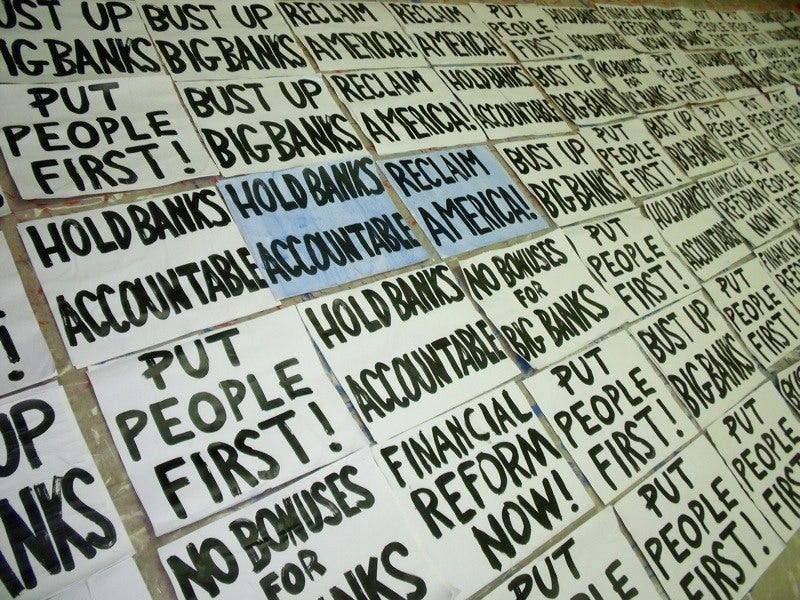 UST UP
IG BANKS
BUST UP
BIG BANKS
RECLAIM
AMERICA!
RECLAIM
AMERICA!
PUT
PEOPLE
FIRST!
HOLD BANKS
ACCOUNTABLE
PUT
PEOPLE
FIRST!
BUST UP
BIG BANKS
RECLAIM
AMERICA!
HOLD BANKS
ACCOUNTABLE
BUST UP
BIG BANKS
NO BONUSES
FOR
BIG BANKS
PUT
PEOPLE
FIRST!
HOLD BANKS
ACCOUNTABLE
HOLD BANKS
ACCOUNTABLE
RECLAIM
AMERICA!
BUST UP
BIG BANKS
PUT
PEOPLE
FIRST!
BUST UP
BIG BANKS
PUT
PEOPLE
FIRST!
!
PUT
PEOPLE
FIRST!
HOLD BANKS
ACCOUNTABLE
NO BONUSES
FOR
BIG BANKS
PUT
PEOPLE
FIRST!
HOLD BANKS
ACCOUNTABLE
FINANCIAL
REFORM
NOW!
UP
ANKS
NO BONUSES
FOR
BANKS
FINANCIAL
REFORM
NOW!
PUT
PEOPLE
FIRST!
BUST UP
BIG BANKS
PUT
PEOPLE
FIRST!
PUT
PEOPLE
PUT
PEOPLE
FIRST!
PUT
PEOPLE
FIRST!